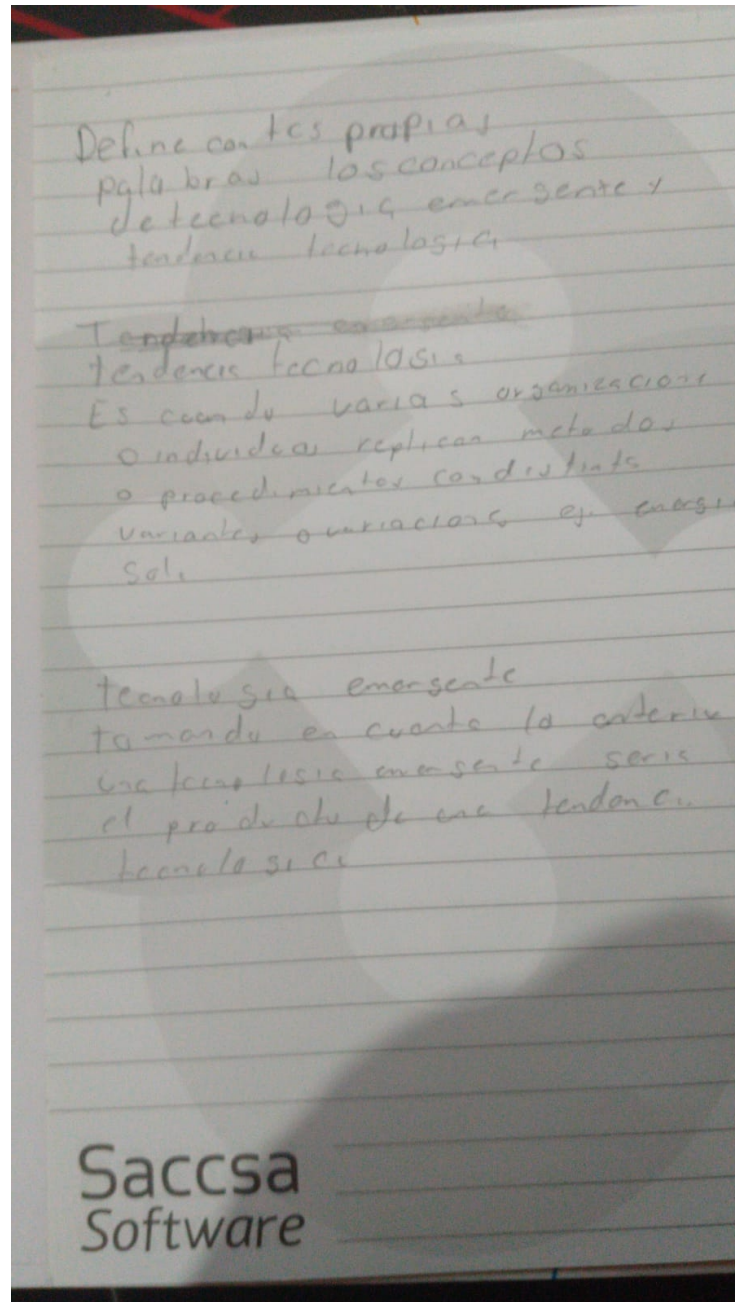 Define con tus propias
palabras los conceptos
de tecnologia emergente y
tendencia tecnologica
tendencia tecnologi
Es cuando varias organizacione
o individuos replican metodos
o procedimientos con distints
variantes o variacions ej. energi
Sol
tecnologia emergente
tomando en cuenta la anterior
una tecnologia emergente seria
el producto de una tendenci
tecnologica
Saccsa
Software